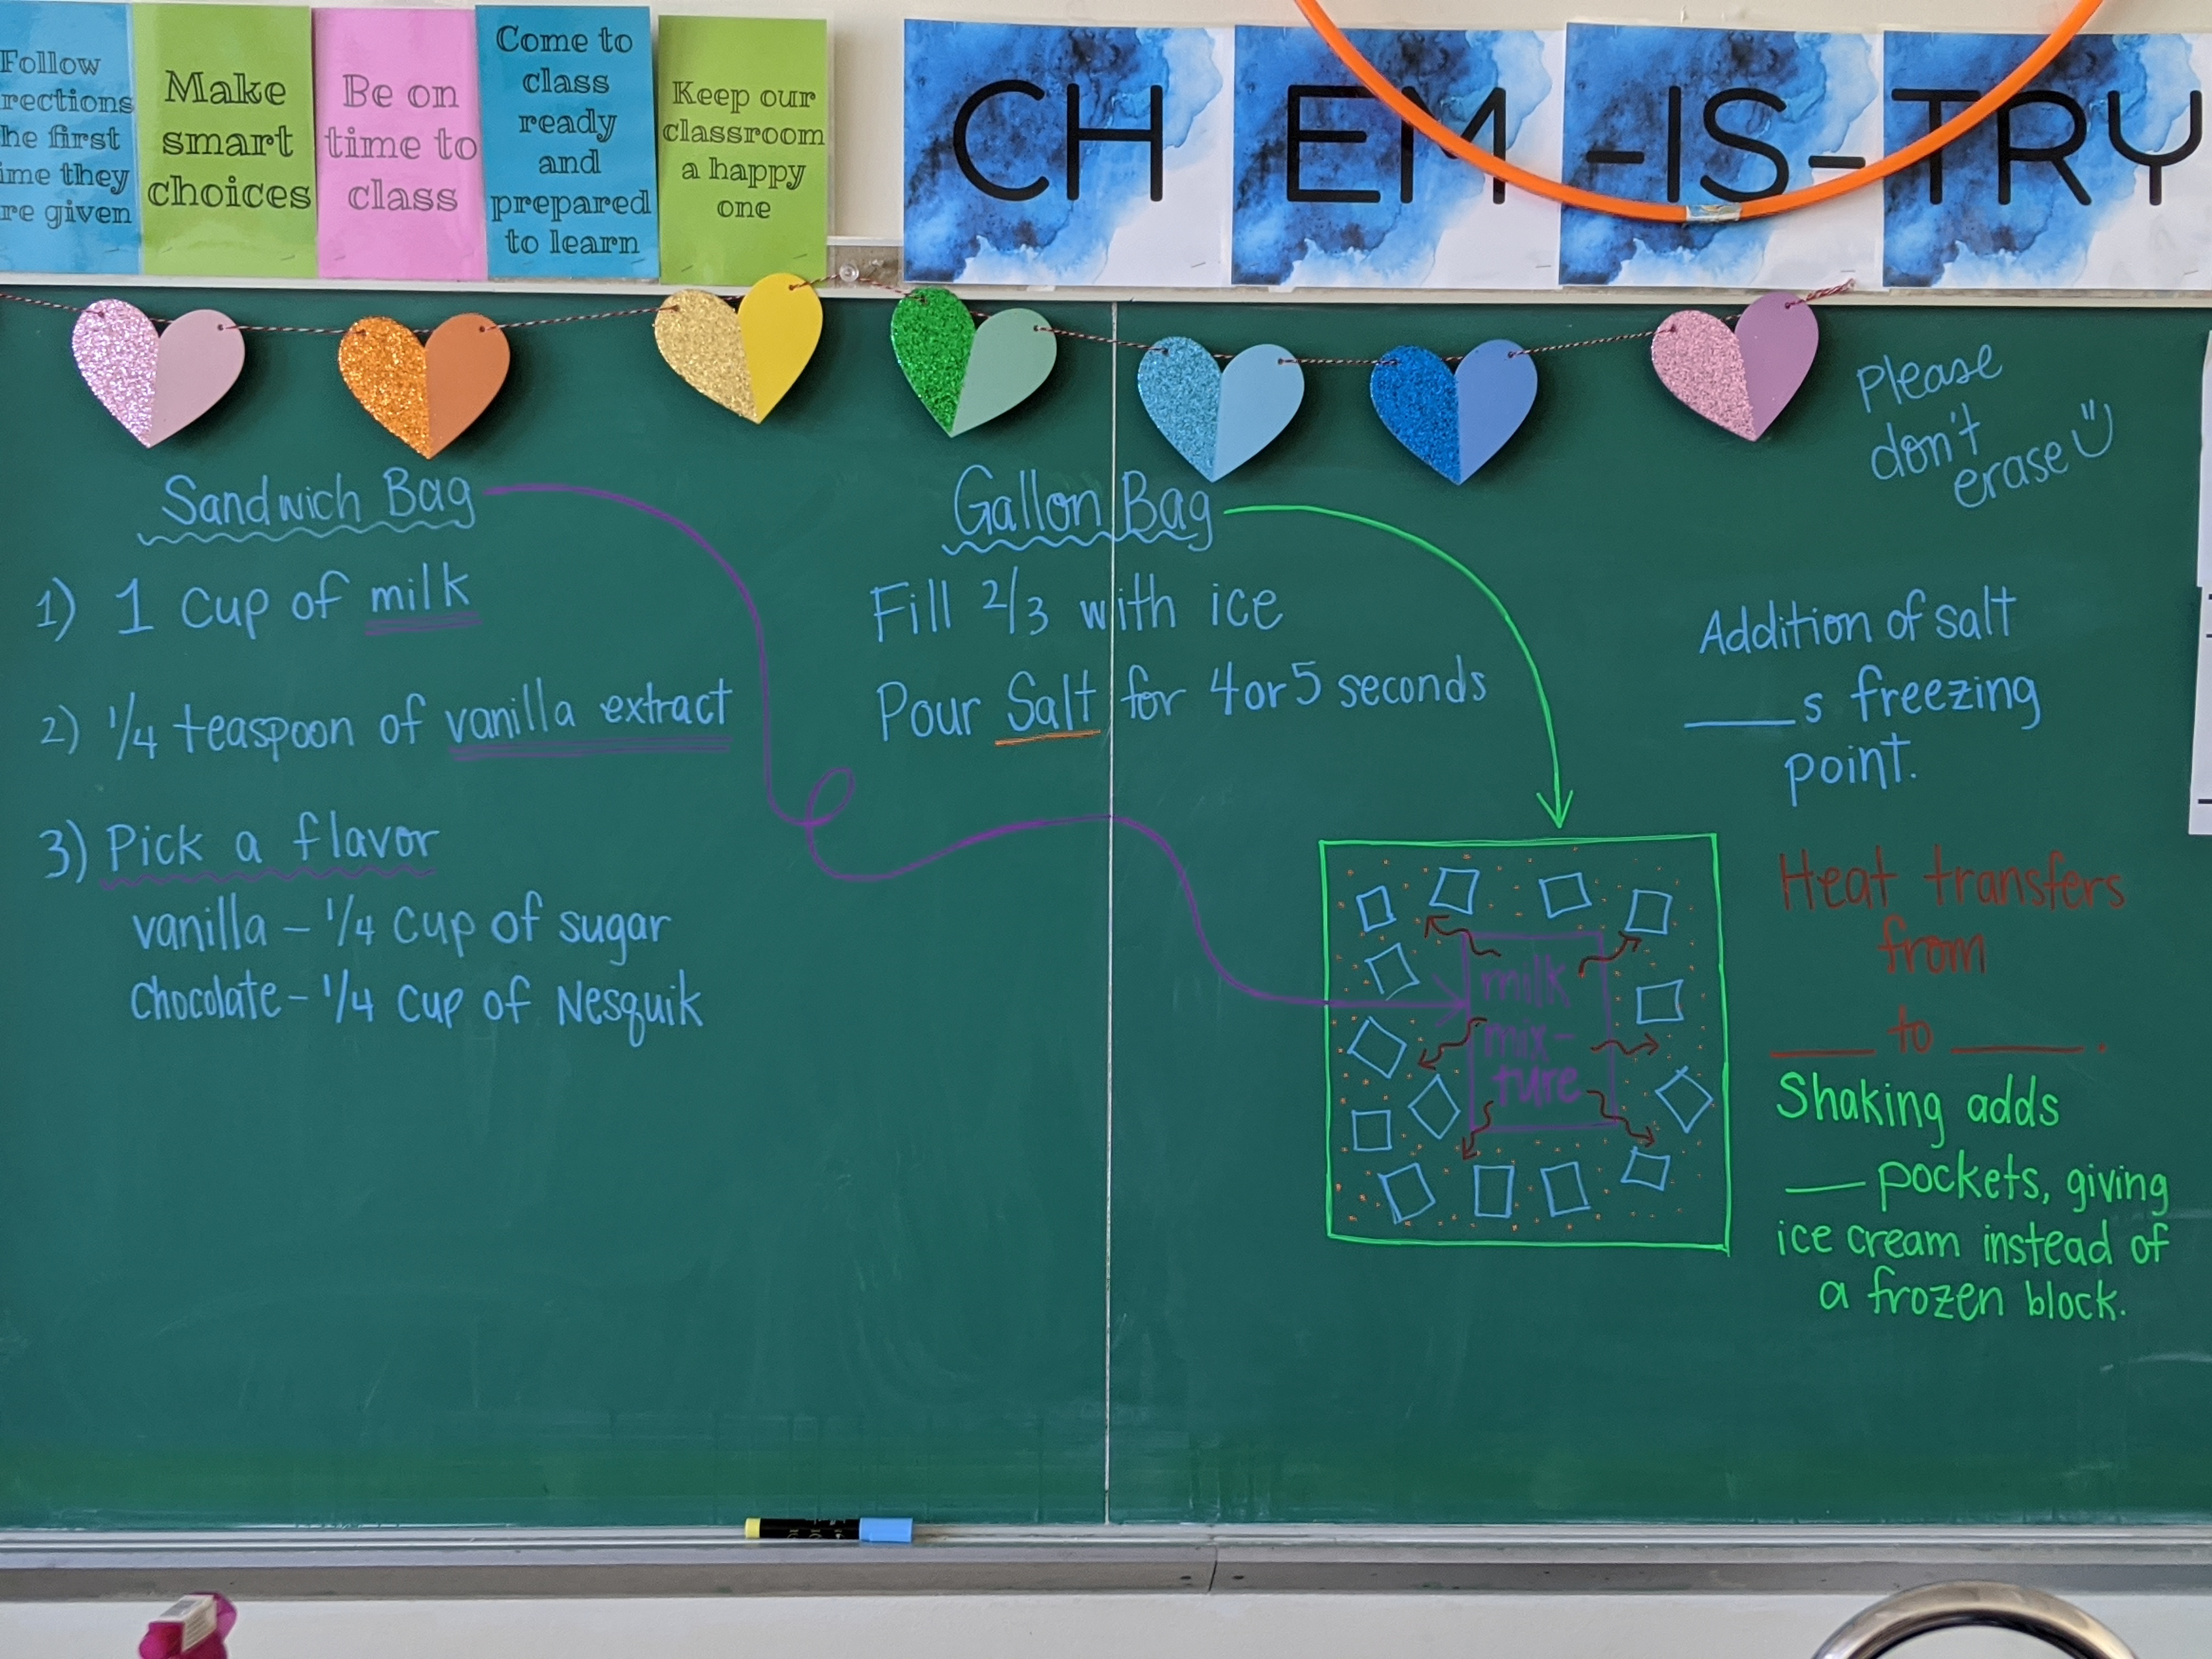 Follow
rections
he first
ime they
re given
Make
smart
choices
Be on
time to
class
Come to
class
ready
and
prepared
to learn
Keep our
classroom
a happy
one
CH EM -IS- TRY
Please
don't
erase
Sandwich Bag
1) 1 cup of milk
2) 1/4 teaspoon of vanilla extract
3) Pick a flavor
vanilla - 1/4 cup of sugar
chocolate - 1/4 cup of Nesquik
Gallon Bag
Fill 2/3 with ice
Pour Salt for 4 or 5 seconds
milk
mix-
ture
Addition of salt
____s freezing
point.
Heat transfers
from
____ to ____.
Shaking adds
___ pockets, giving
ice cream instead of
a frozen block.